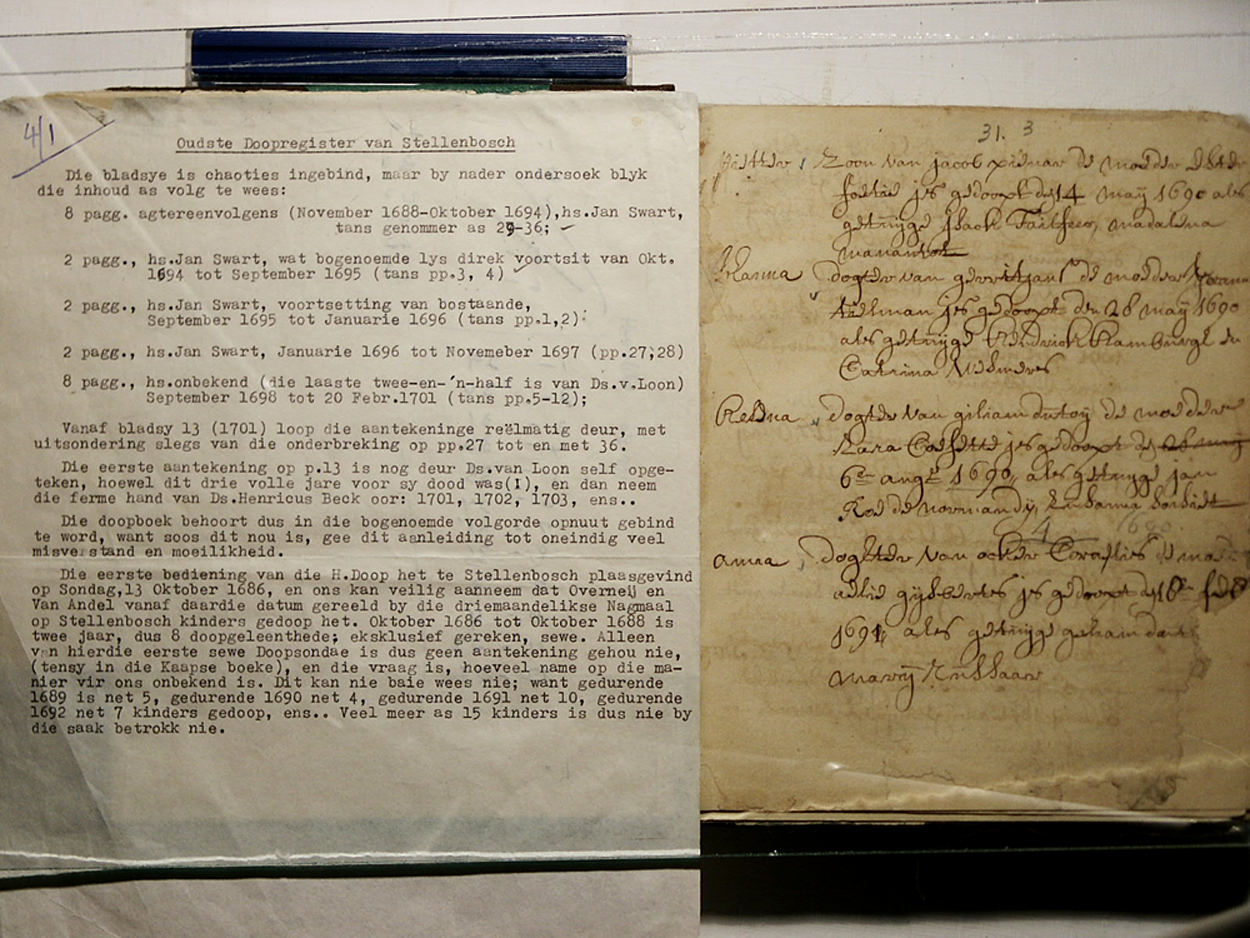 4/1
Oudste Doopregister van Stellenbosch
Die bladsye is chaoties ingebind, maar by nader ondersoek blyk
die inhoud as volg te wees:
8 pagg. agtereenvolgens (November 1688-Oktober 1694),hs.Jan Swart,
tans genommer as 29-36;
2 pagg., hs.Jan Swart, wat bogenoemde lys direk voortsit van Okt.
1694 tot September 1695 (tans pp.3, 4)
2 pagg., hs.Jan Swart, voortsetting van bostaande,
September 1695 tot Januarie 1696 (tans pp.1,2).
2 pagg., hs.Jan Swart, Januarie 1696 tot Novemeber 1697 (pp.27;28)
8 pagg., hs.onbekend (die laaste twee-en-'n-half is van Ds.v.Loon)
September 1698 tot 20 Febr.1701 (tans pp.5-12);
Vanaf bladsy 13 (1701) loop die aantekeninge reëlmatig deur, met
uitsondering slegs van die onderbreking op pp.27 tot en met 36.
Die eerste aantekening op p.13 is nog deur Ds.van Loon self opge-
teken, hoewel dit drie volle jare voor sy dood was(!), en dan neem
die ferme hand van Ds.Henricus Beck oor: 1701, 1702, 1703, ens..
Die doopboek behoort dus in die bogenoemde volgorde opnuut gebind
te word, want soos dit nou is, gee dit aanleiding tot oneindig veel
misverstand en moeilikheid.
Die eerste bediening van die H.Doop het te Stellenbosch plaasgevind
op Sondag,13 Oktober 1686, en ons kan veilig aanneem dat Overneij en
Van Andel vanaf daardie datum gereeld by die driemaandelikse Nagmaal
op Stellenbosch kinders gedoop het. Oktober 1686 tot Oktober 1688 is
twee jaar, dus 8 doopgeleenthede; eksklusief gereken, sewe. Alleen
van hierdie eerste sewe Doopsondae is dus geen aantekening gehou nie,
(tensy in die Kaapse boeke), en die vraag is, hoeveel name op die ma-
nier vir ons onbekend is. Dit kan nie baie wees nie; want gedurende
1689 is net 5, gedurende 1690 net 4, gedurende 1691 net 10, gedurende
1692 net 7 kinders gedoop, ens.. Veel meer as 15 kinders is dus nie by
die saak betrokk nie.
31. 3
Zoon van jacob de moeder
jes gedoopt 14 maij 1690 als
getuijge jsack madalena
dogter van de moeder
jes gedoopt den 28 maij 1690
als getuijge Hendrick en
Catrina
dogter van giliam dutoij de moeder
Zara jes gedoopt
6en augt 1690 als getuijge jan
Rod de normandij
anna dogter van de
jes gedoopt
1691 als getuijge
marij